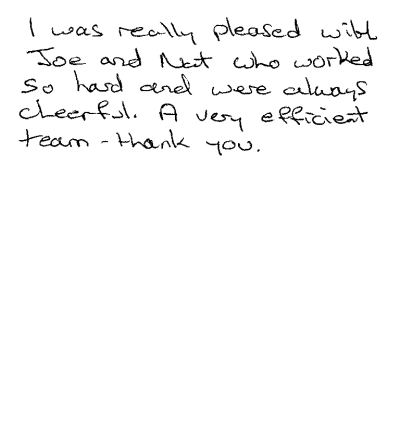 I was really pleased with
Joe and Nat who worked
so hard and were always
cheerful. A very efficient
team - thank you.